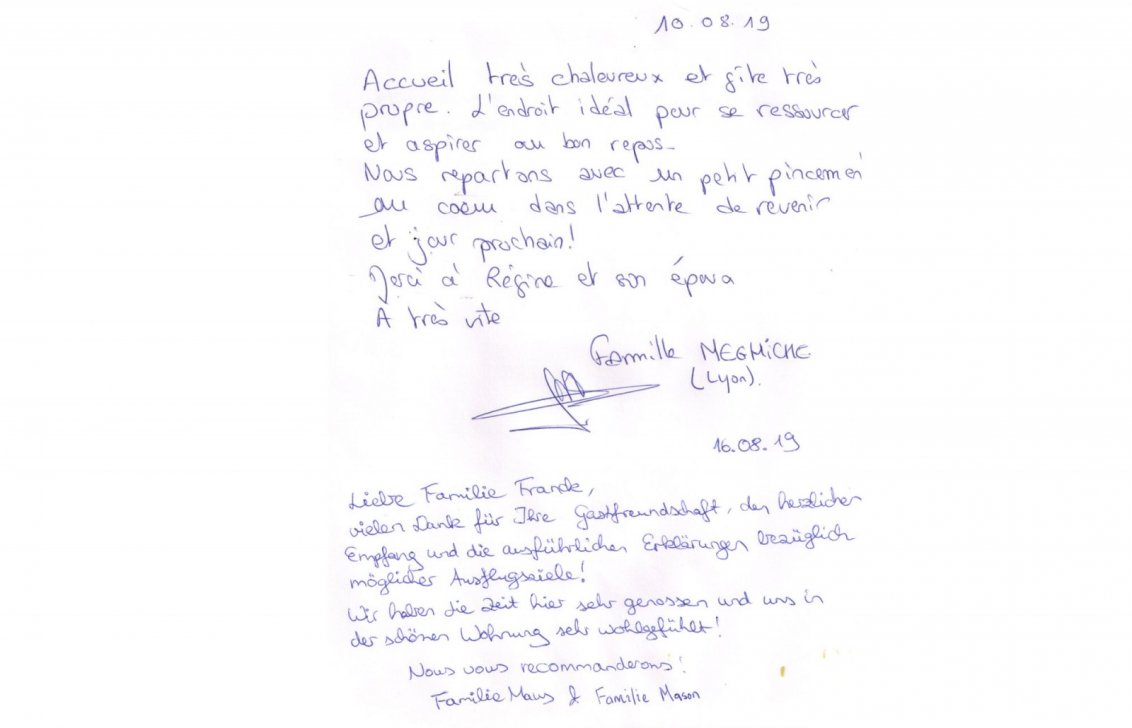 10.08.19
Accueil très chaleureux et gîte très
propre. L'endroit idéal pour se ressourcer
et aspirer au bon repos_
Nous repartons avec un petit pincemen
au coeur dans l'attente de revenir
et jour prochain!
Merci à Régine et son époux
A très vite
Famille MEGHICHE
(Lyon).
16.08.19
Liebe Familie Franck,
vielen Dank für Ihre Gastfreundschaft, den herzlichen
Empfang und die ausführlichen Erklärungen bezüglich
möglicher Ausflugsziele!
Wir haben die Zeit hier sehr genossen und uns in
der schönen Wohnung sehr wohlgefühlt!
Nous vous recommanderons!
Familie Maus & Familie Mason